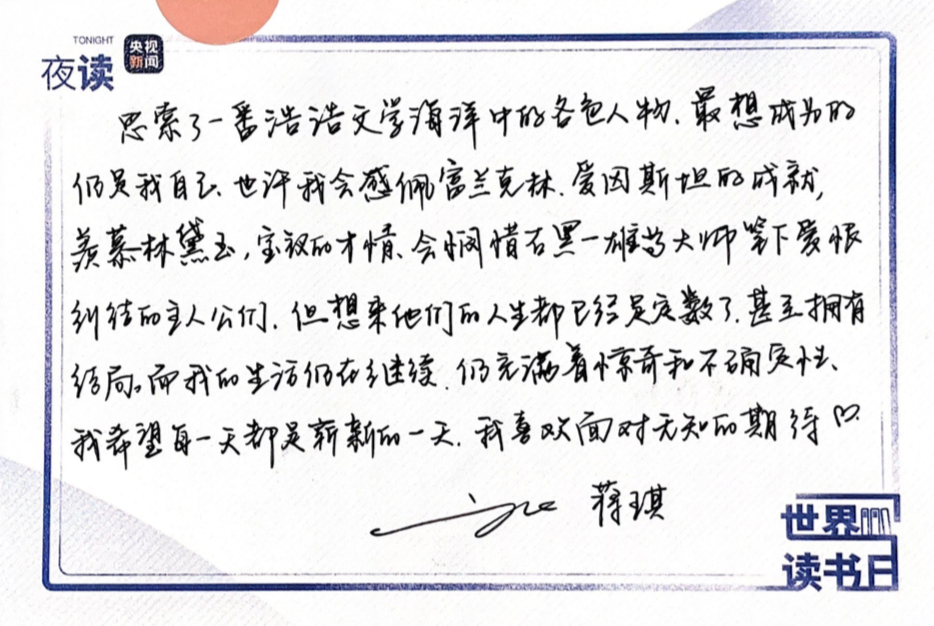 TONIGHT
夜读
央视
新闻
思索了一番浩浩文学海洋中的各色人物、最想成为的
仍是我自己、也许我会感佩富兰克林、爱因斯坦的成就,
羡慕林黛玉,宝钗的才情、会悯惜石黑一雄等大师笔下爱恨
纠结的主人公们、但想来他们的人生都已经是定数了、甚至拥有
结局。而我的生活仍在继续、仍充满着惊奇和不确定性、
我希望每一天都是崭新的一天、我喜欢面对无知的期待♡.
蒋琪
世界
读书日